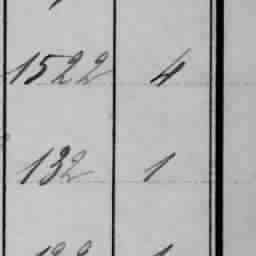 1522 4
132 1